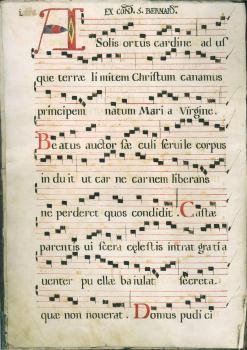 EX CONV. S. BERNARD.
A Solis ortus cardine ad uſ
que terræ limitem Chriſtum canamus
principem natum Maria Virgine.
Beatus auctor ſæculi ſeruile corpus
induit ut carne carnem liberans
ne perderet quos condidit. Caſtæ
parentis uiſcera celeſtis intrat gratia
uenter puellæ baiulat ſecreta.
quæ non nouerat. Domus pudici